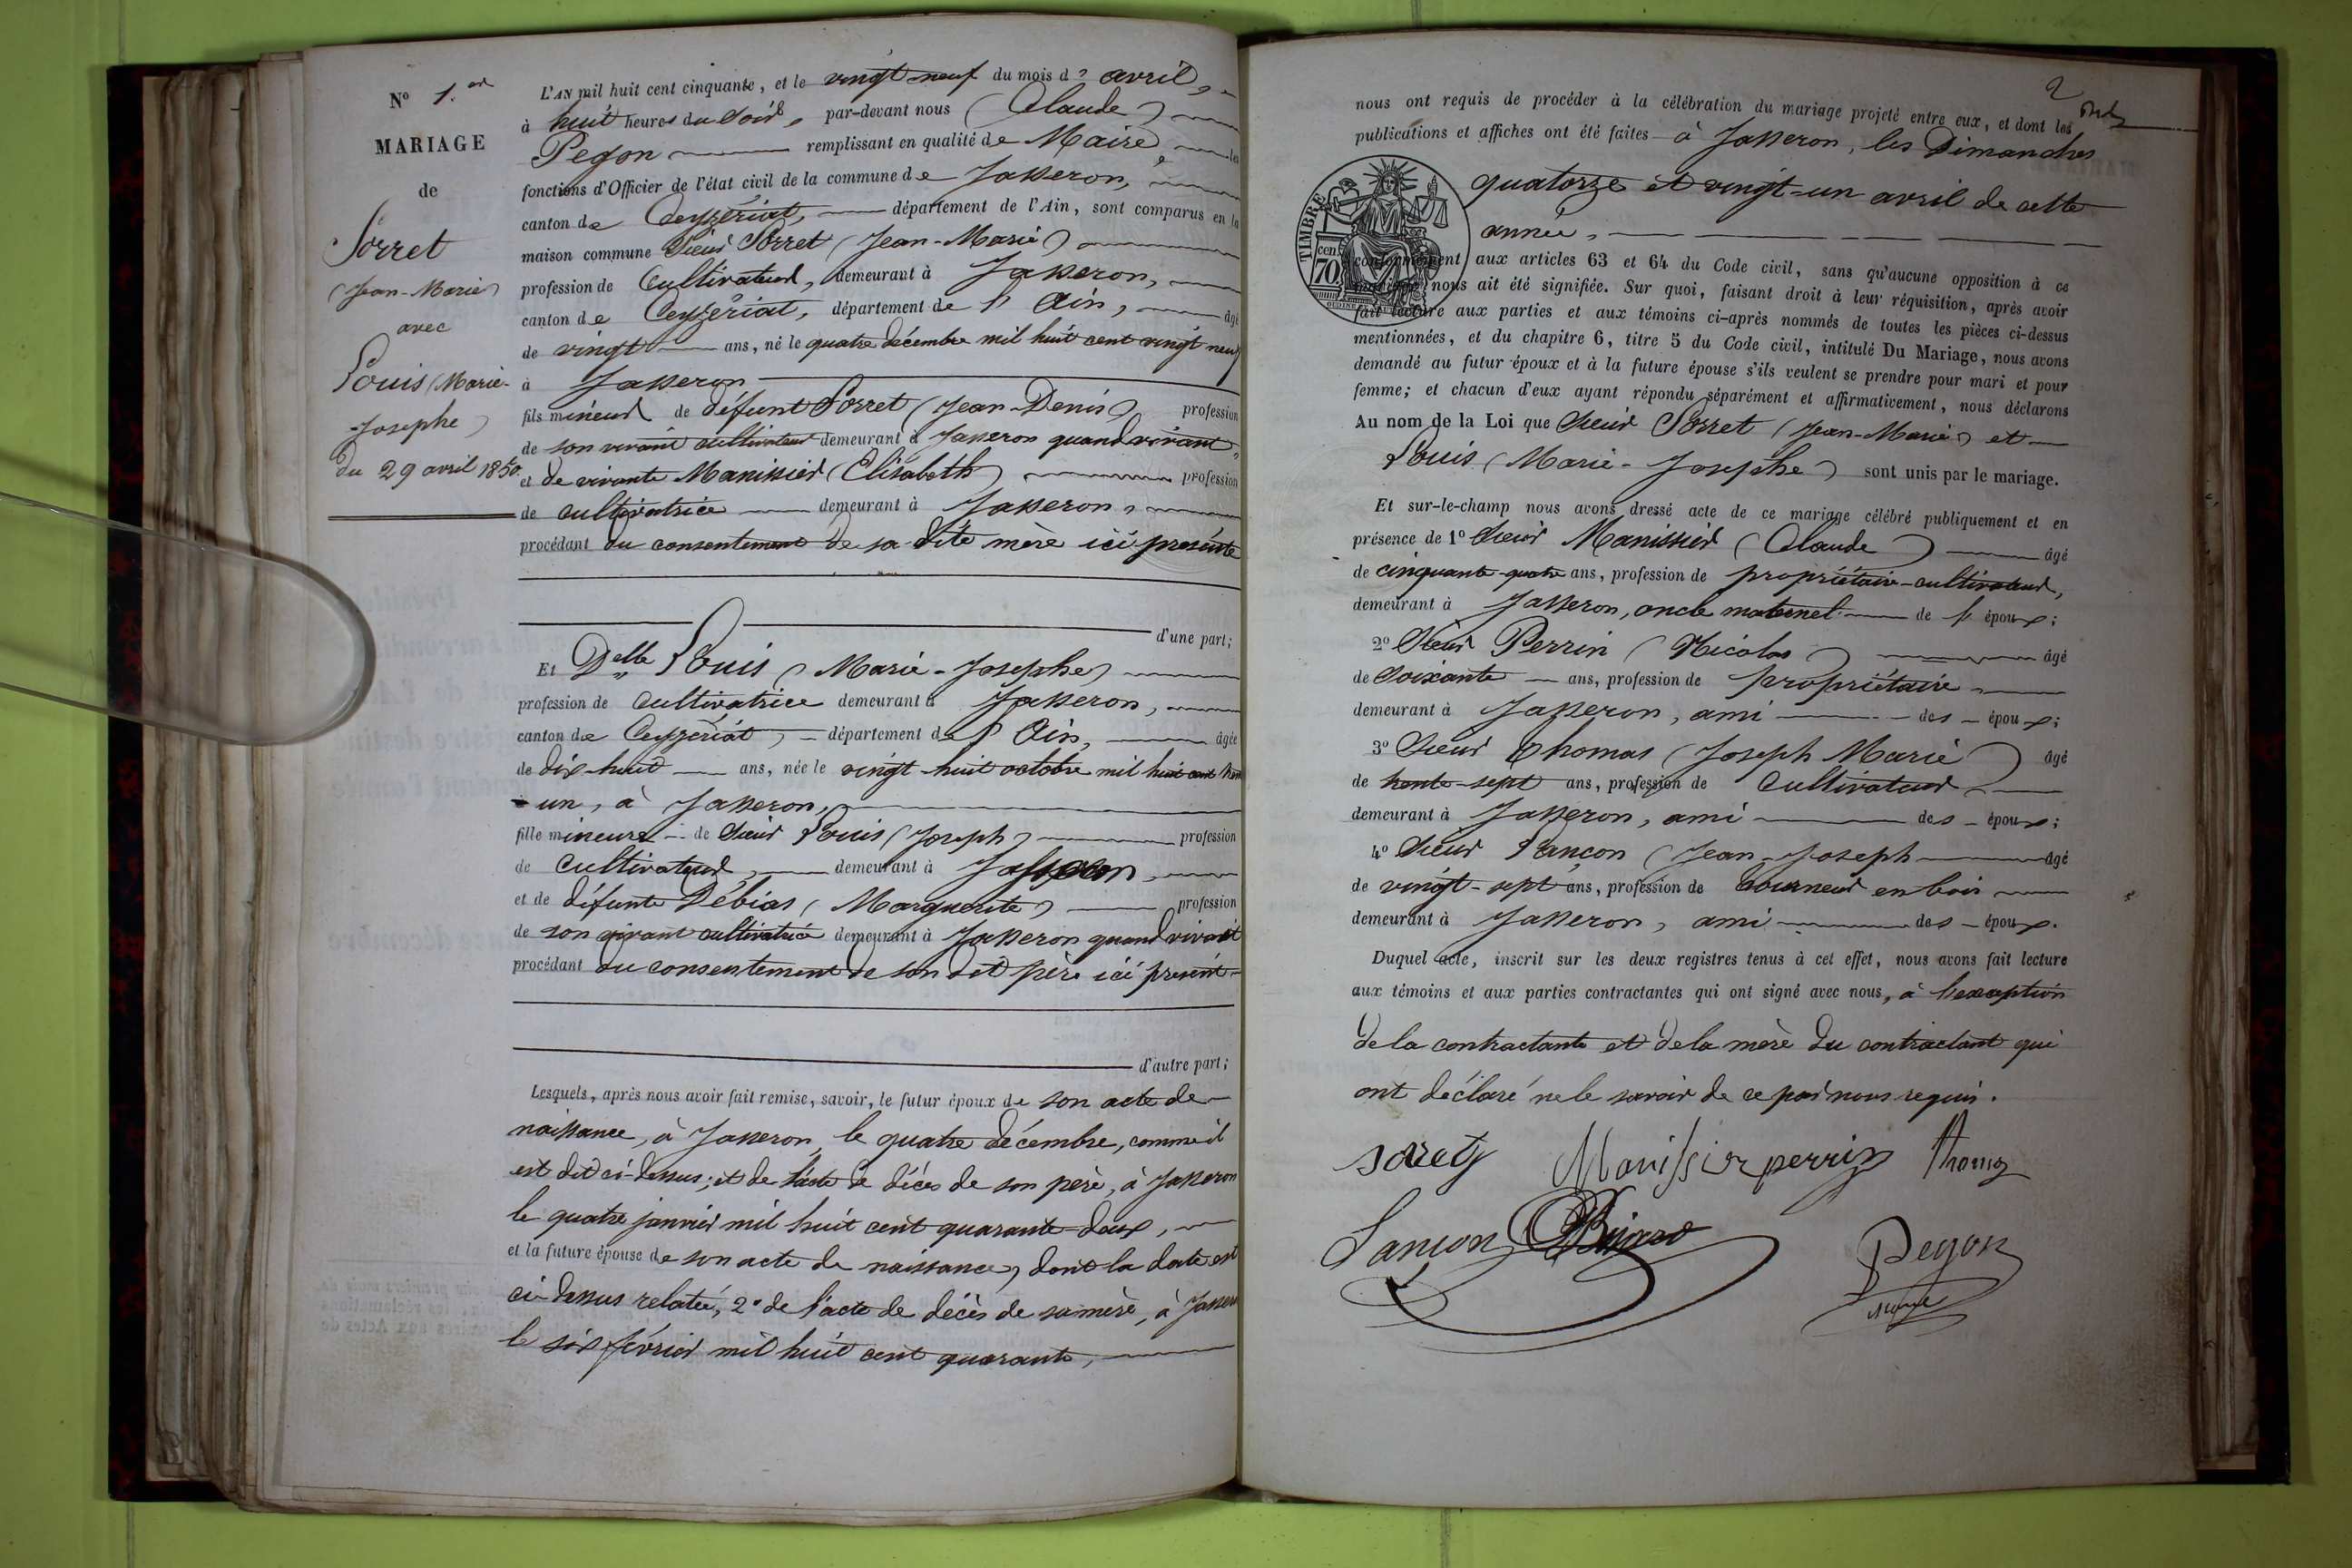 N° 1.er
MARIAGE
de
Sorret
(Jean-Marie)
avec
Louis (Marie-
Josephe)
du 29 avril 1850.
L'AN mil huit cent cinquante, et le vingt-neuf du mois d'avril,
à huit heures du soir, par-devant nous (Claude)
Pegon remplissant en qualité de Maire les
fonctions d'Officier de l'état civil de la commune de Jasseron,
canton de Ceyzériat, département de l'Ain, sont comparus en la
maison commune Sieur Sorret (Jean-Marie)
profession de Cultivateur, demeurant à Jasseron,
canton de Ceyzériat, département de l'Ain, âgé
de vingt ans, né le quatre décembre mil huit cent vingt neuf
à Jasseron
fils mineur de défunt Sorret (Jean-Denis) profession
de son vivant cultivateur demeurant à Jasseron quand vivant,
et de vivante Manissier (Elisabeth) profession
de cultivatrice demeurant à Jasseron,
procédant du consentement de sa dite mère ici présente
d'une part;
Et Delle Louis (Marie-Josephe)
profession de cultivatrice demeurant à Jasseron,
canton de Ceyzériat, département de l'Ain, âgée
de dix-huit ans, née le vingt-huit octobre mil huit cent trente
-un, à Jasseron,
fille mineure de Sieur Louis (Joseph) profession
de Cultivateur, demeurant à Jasseron,
et de défunte Débias (Marguerite) profession
de son vivant cultivatrice demeurant à Jasseron quand vivait
procédant du consentement de son dit père ici présent
d'autre part;
Lesquels, après nous avoir fait remise, savoir, le futur époux de son acte de
naissance, à Jasseron, le quatre décembre, comme il
est dit ci-dessus; et de l'acte de décès de son père, à Jasseron
le quatre janvier mil huit cent quarante-deux,
et la future épouse de son acte de naissance, dont la date est
ci-dessus relatée, 2° de l'acte de décès de sa mère, à Jasseron
le six février mil huit cent quarante,
2
nous ont requis de procéder à la célébration du mariage projeté entre eux, et dont les
publications et affiches ont été faites à Jasseron, les Dimanches
quatorze et vingt-un avril de cette
année,
TIMBRE
cen.
70.
conformément aux articles 63 et 64 du Code civil, sans qu'aucune opposition à ce
mariage nous ait été signifiée. Sur quoi, faisant droit à leur réquisition, après avoir
fait lecture aux parties et aux témoins ci-après nommés de toutes les pièces ci-dessus
mentionnées, et du chapitre 6, titre 5 du Code civil, intitulé Du Mariage, nous avons
demandé au futur époux et à la future épouse s'ils veulent se prendre pour mari et pour
femme; et chacun d'eux ayant répondu séparément et affirmativement, nous déclarons
Au nom de la Loi que Sieur Sorret (Jean-Marie) et
Louis (Marie-Josephe) sont unis par le mariage.
Et sur-le-champ nous avons dressé acte de ce mariage célébré publiquement et en
présence de 1° Sieur Manissier (Claude) âgé
de cinquante-quatre ans, profession de propriétaire-cultivateur,
demeurant à Jasseron, oncle maternel de l'époux;
2° Sieur Perrin (Nicolas) âgé
de soixante ans, profession de propriétaire
demeurant à Jasseron, ami des époux;
3° Sieur Thomas (Joseph Marie) âgé
de trente-sept ans, profession de Cultivateur,
demeurant à Jasseron, ami des époux;
4° Sieur Lançon (Jean-Joseph âgé
de vingt-sept ans, profession de tourneur en bois
demeurant à Jasseron, ami des époux.
Duquel acte, inscrit sur les deux registres tenus à cet effet, nous avons fait lecture
aux témoins et aux parties contractantes qui ont signé avec nous, à l'exception
de la contractante et de la mère du contractant qui
ont déclaré ne le savoir de ce par nous requis.
soret Manissier perrin Thomas
Lancon
Pegon
maire